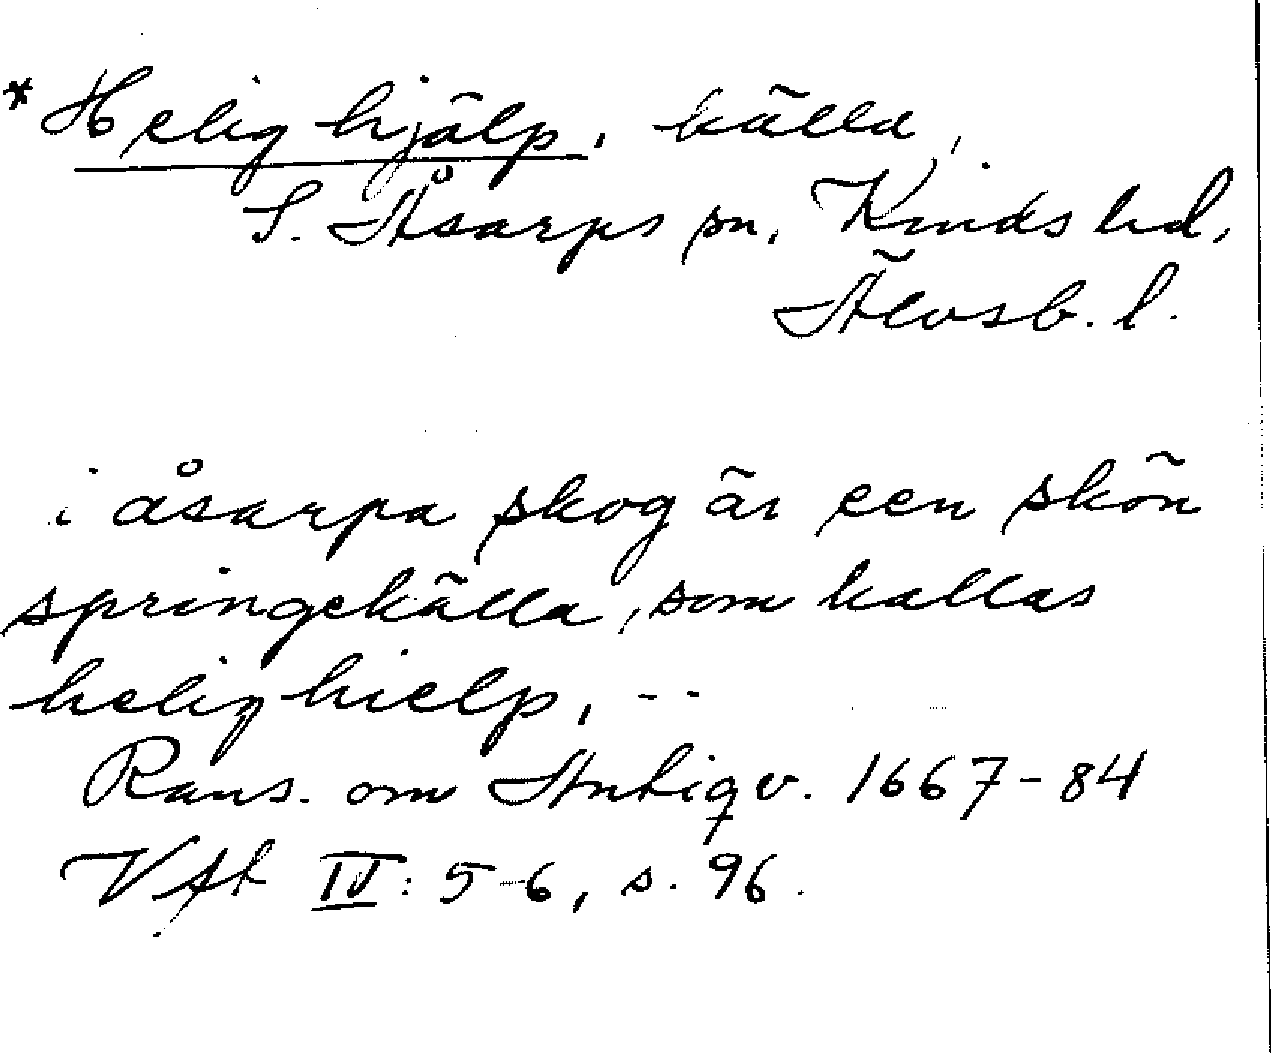 * Helig hjälp, källa,
S. Åsarps sn, Kinds hd,
Älvsb. l.
i åsarpa skog är een skön
springekälla, som kallas
helig hielp, --
Rans. om Antiqv. 1667-84
Vft IV: 5-6, s. 96.